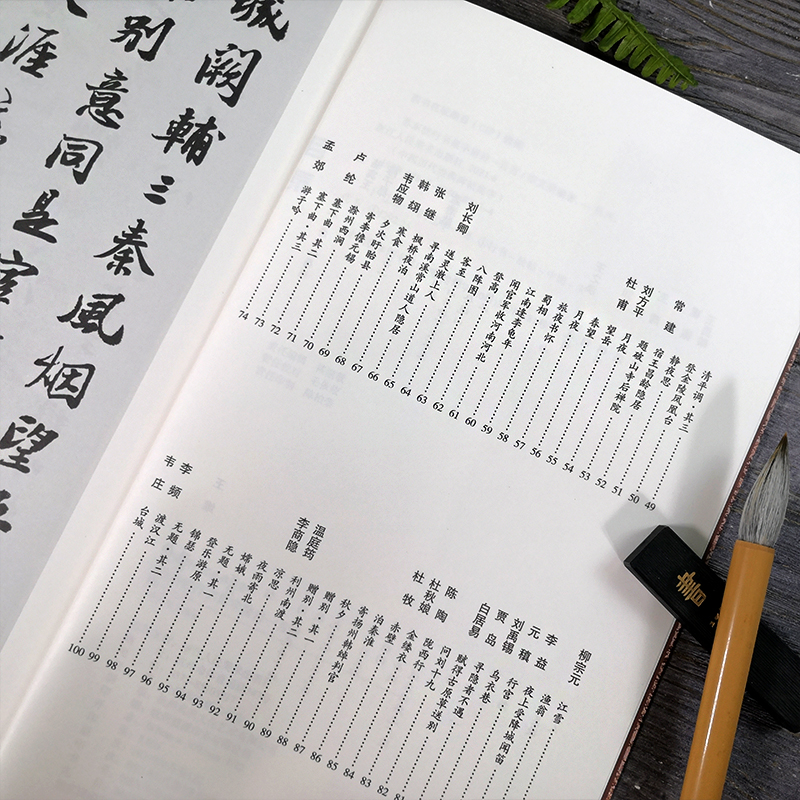 城阙辅三秦风烟望五
别意同是宦
涯
清平调·其三 49
登金陵凤凰台 50
静夜思 51
常建 宿王昌龄隐居 52
题破山寺后禅院 53
刘方平 月夜 54
杜甫 望岳 55
春望 56
月夜 57
旅夜书怀 58
蜀相 59
江南逢李龟年 60
闻官军收河南河北 61
登高 62
八阵图 63
客至 64
刘长卿 送灵澈上人 65
寻南溪常山道人隐居 66
张继 枫桥夜泊 67
韩翃 寒食 68
韦应物 夕次盱眙县 69
寄李儋元锡 70
滁州西涧 71
卢纶 塞下曲·其二 72
塞下曲·其三 73
孟郊 游子吟 74
柳宗元 江雪
渔翁
李益 夜上受降城闻笛
元稹 行宫
刘禹锡 乌衣巷
贾岛 寻隐者不遇
白居易 赋得古原草送别 81
问刘十九 82
陈陶 陇西行 83
杜秋娘 金缕衣 84
杜牧 赤壁 85
泊秦淮 86
寄扬州韩绰判官 87
秋夕 88
赠别·其一 89
赠别·其二 90
温庭筠 利州南渡 91
李商隐 凉思 92
夜雨寄北 93
嫦娥 94
无题·其一 95
登乐游原 96
锦瑟 97
无题·其二 98
李频 渡汉江 99
韦庄 台城 100